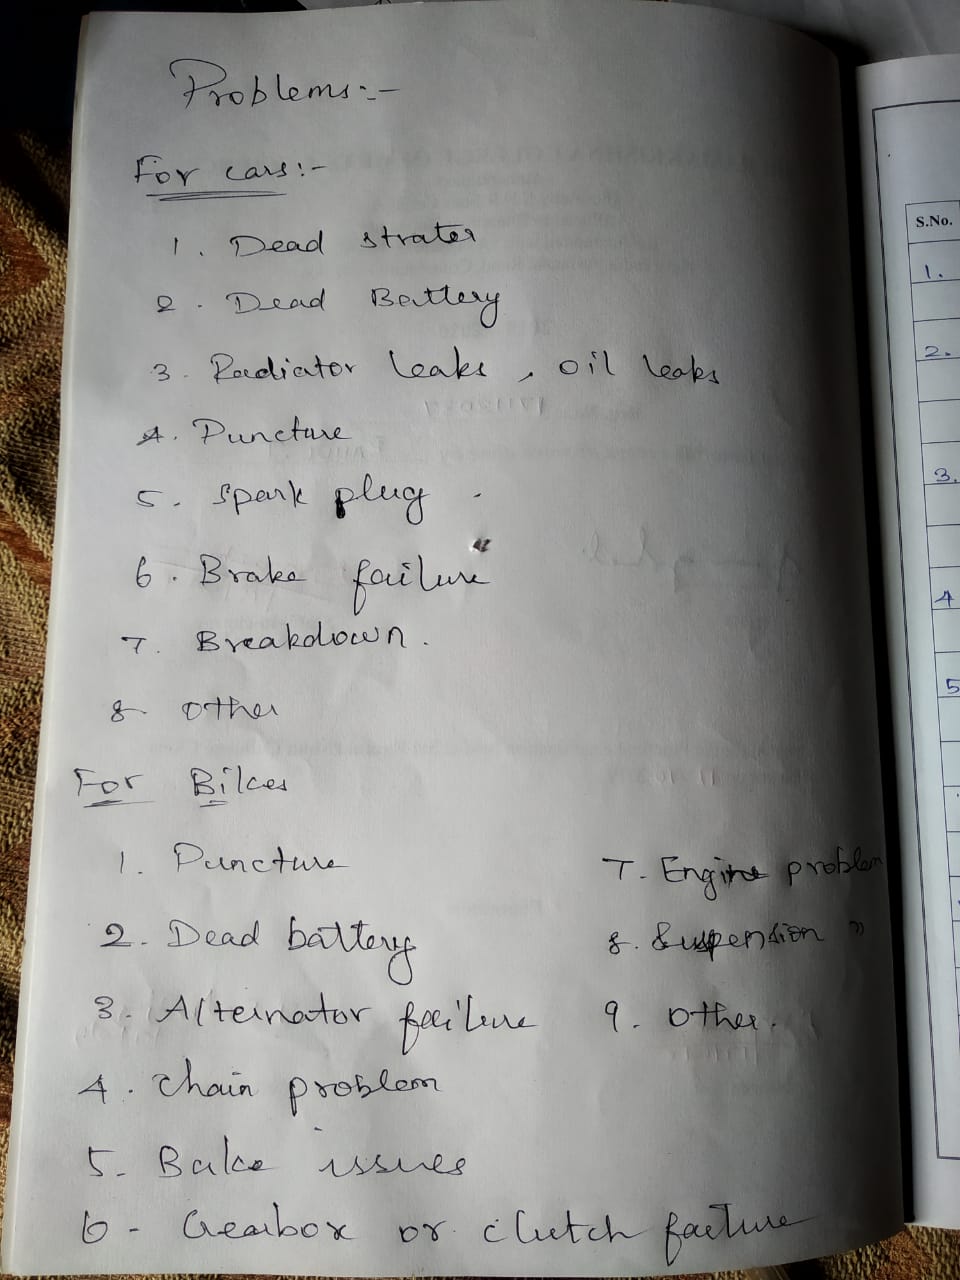 Problems:-
For cars:-
1. Dead strater
2. Dead Battery
3. Radiator leaks, oil leaks
4. Puncture
5. Spark plug.
6. Brake failure
7. Breakdown.
8 other
For Bikes
1. Puncture
2. Dead battery
3. Alternator failure
4. Chain problem
5. Bake issues
6 - Gearbox or clutch failure
7. Engine problem
8. Suspension "
9. other.
S.No.
1.
2.
3.
4
5